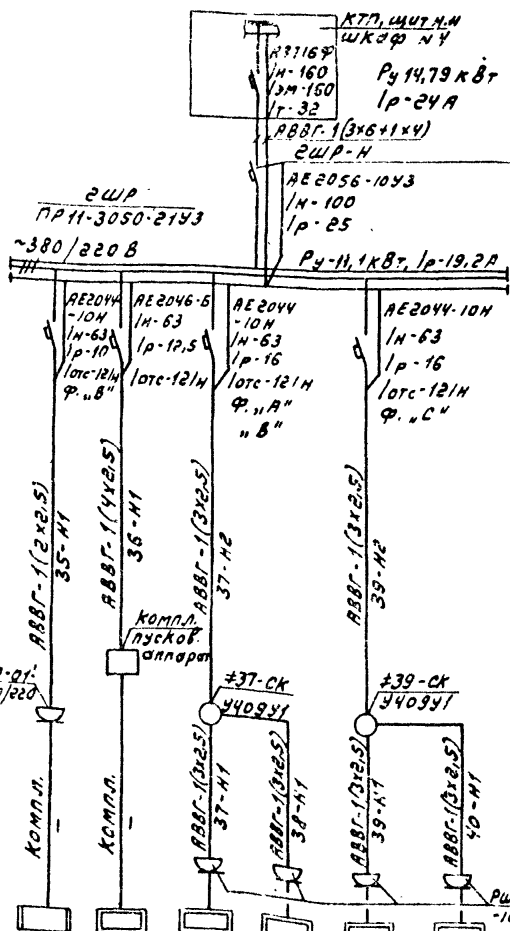 КТП, щит н.н
шкаф №4
А3716Ф
Iн-160
Iэм-150
Iт-32
Ру 14,79 кВт
Iр-24А
АВВГ-1(3х6+1х4)
2ШР-Н
АЕ2056-10У3
Iн-100
Iр-25
2ШР
ПР11-3050-21У3
~380/220 В
Ру-11,1кВт, Iр-19,2А
АЕ2044
-10Н
Iн-63
Iр-10
Iотс-12Iн
Ф. „В"
АЕ2046-Б
Iн-63
Iр-12,5
Iотс-12Iн
АЕ2044
-10Н
Iн-63
Iр-16
Iотс-12Iн
Ф. „А"
„В"
АЕ2044-10Н
Iн-63
Iр-16
Iотс-12Iн
Ф. „С"
АВВГ-1(2х2,5)
35-Н1
АВВГ-1(4х2,5)
36-Н1
АВВГ-1(3х2,5)
37-Н2
АВВГ-1(3х2,5)
39-Н2
компл.
пусков.
аппарат
-01-
/220
±37-СК
У409У1
±39-СК
У409У1
Компл.
—
Компл.
—
АВВГ-1(3х2,5)
37-Н1
АВВГ-1(3х2,5)
38-Н1
АВВГ-1(3х2,5)
39-Н1
АВВГ-1(3х2,5)
40-Н1
РШ
-10